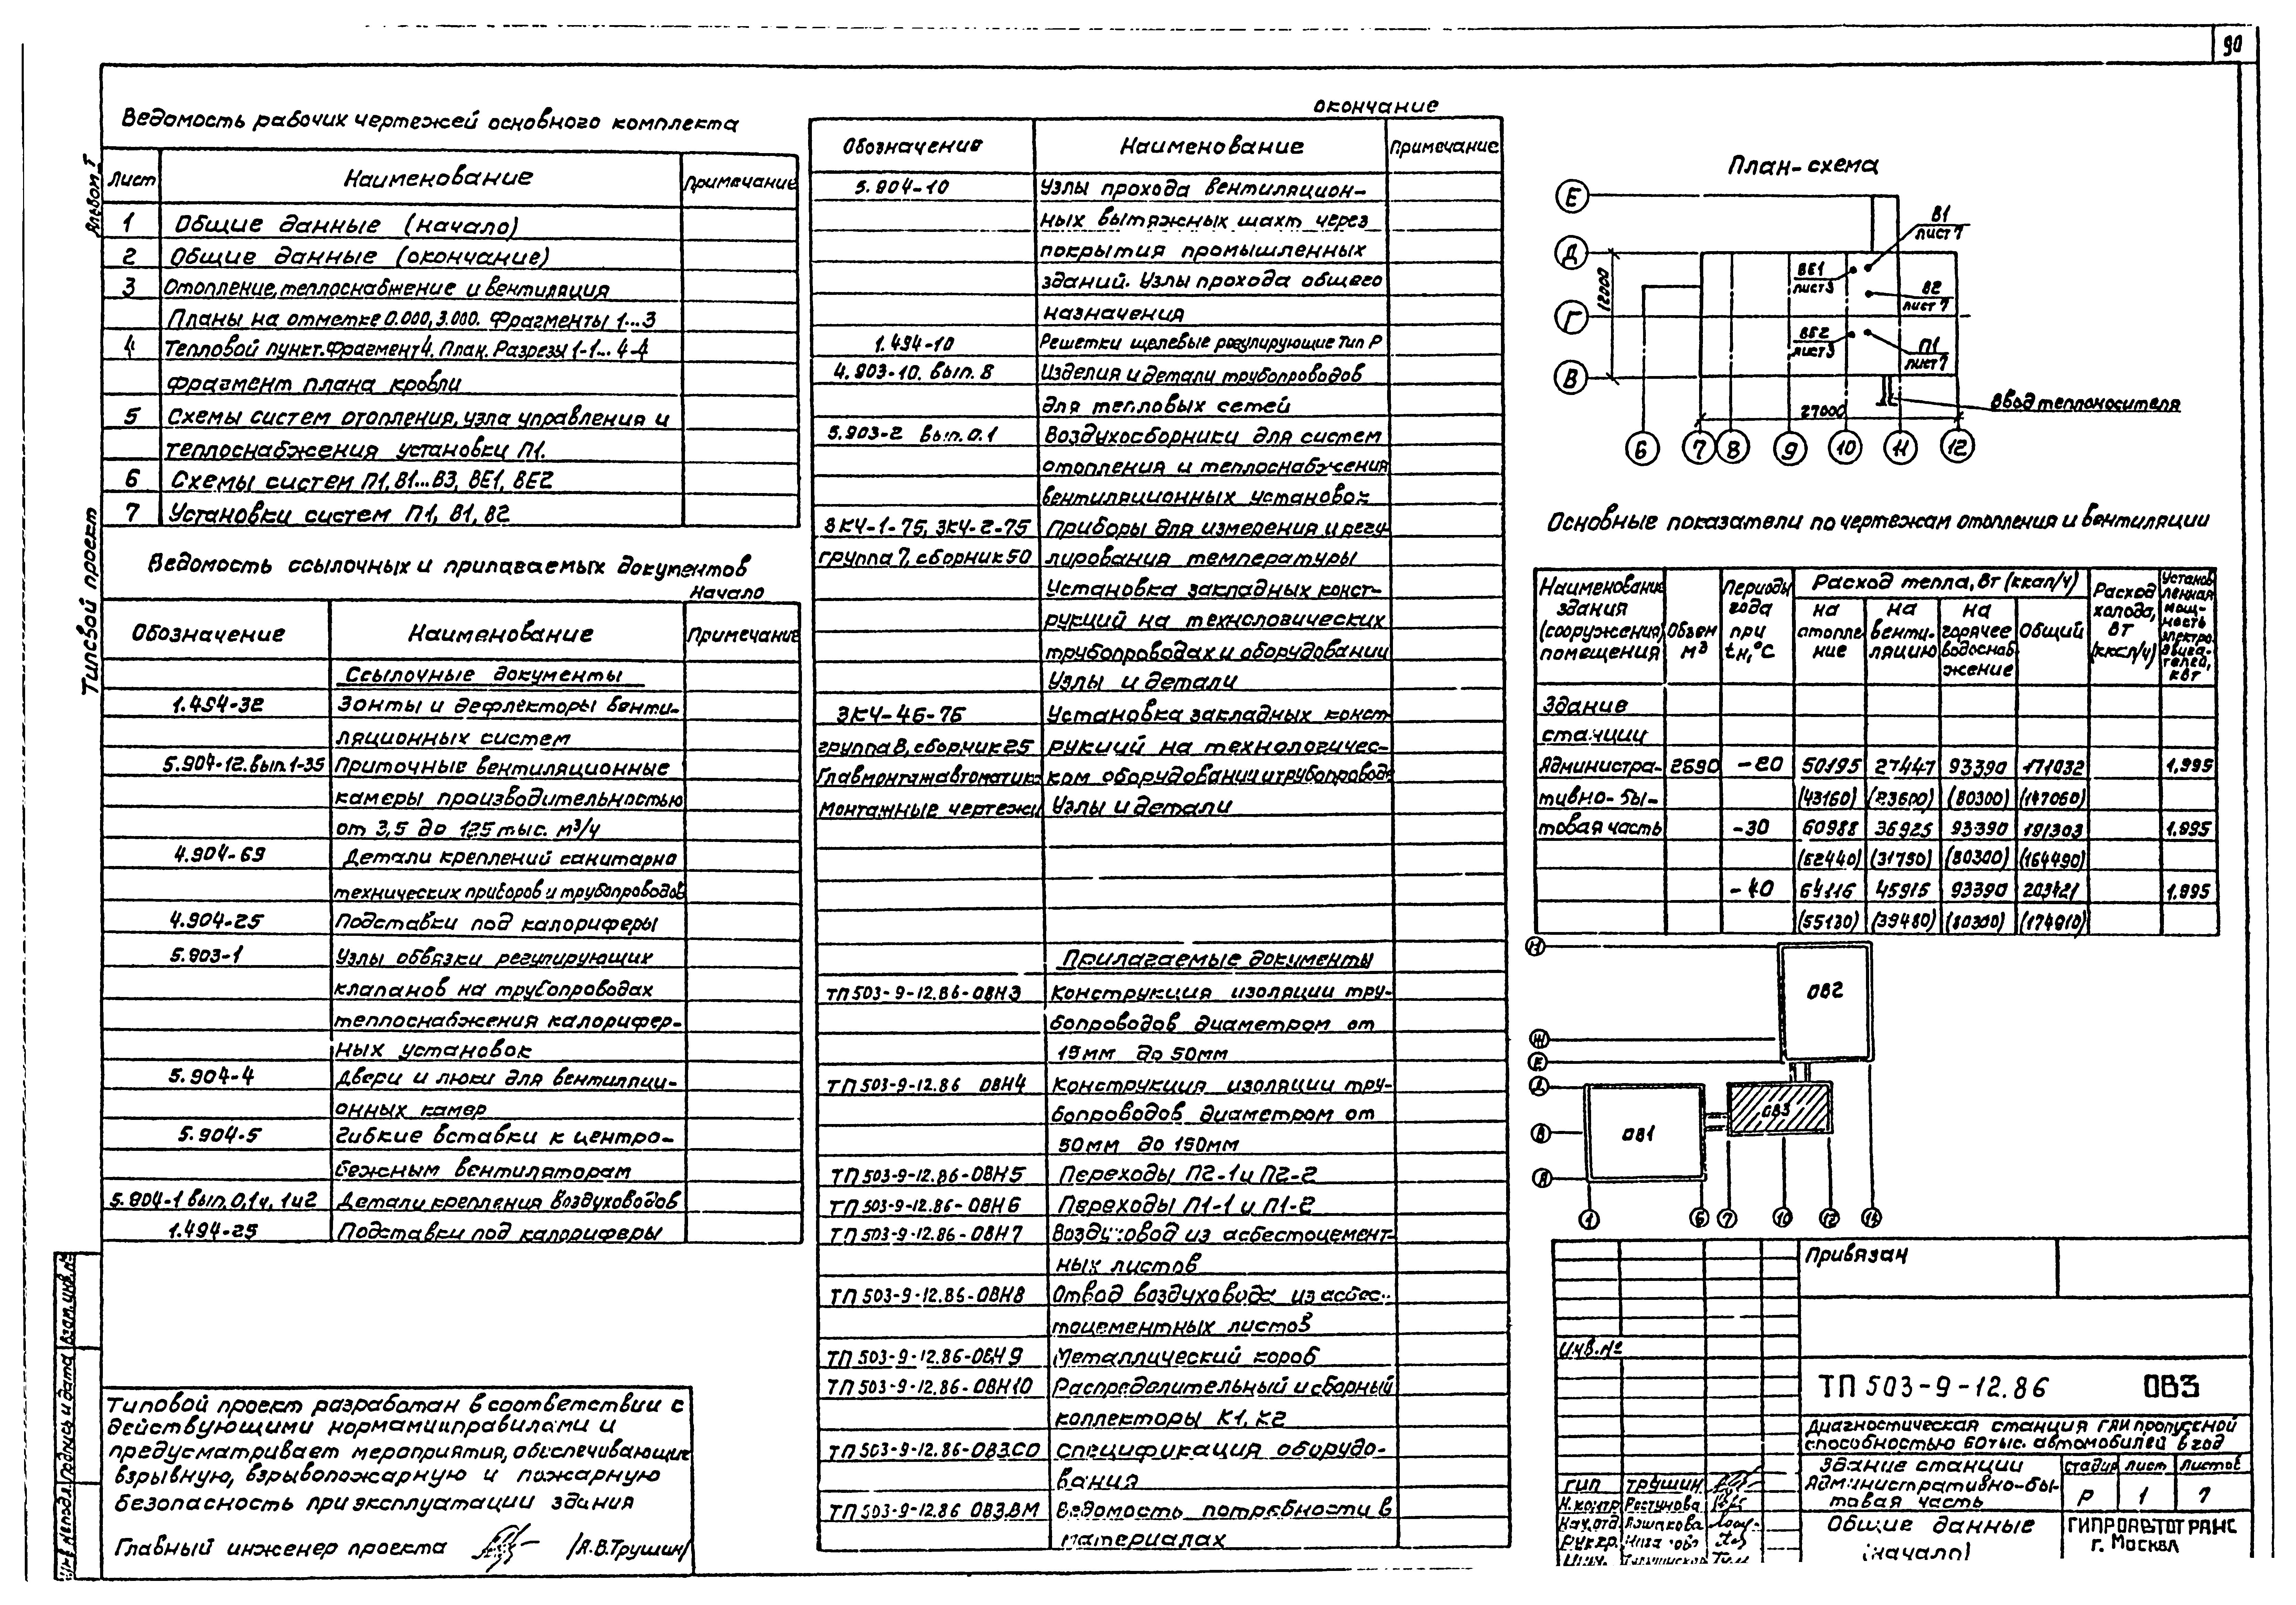 90
Альбом I
Типовой проект
Ведомость рабочих чертежей основного комплекта
Лист Наименование Примечание
1 Общие данные (начало)
2 Общие данные (окончание)
3 Отопление, теплоснабжение и вентиляция
Планы на отметке 0.000, 3.000. Фрагменты 1...3
4 Тепловой пункт. Фрагмент 4. План. Разрезы 1-1... 4-4
Фрагмент плана кровли
5 Схемы систем отопления, узла управления и
теплоснабжения установки П1.
6 Схемы систем П1, В1...В3, ВЕ1, ВЕ2
7 Установки систем П1, В1, В2
Ведомость ссылочных и прилагаемых документов
Начало
Обозначение Наименование Примечание
Ссылочные документы
1.494-32 Зонты и дефлекторы венти-
ляционных систем
5.904-12. вып. 1-35 Приточные вентиляционные
камеры производительностью
от 3,5 до 125 тыс. м³/ч
4.904-69 Детали креплений санитарно
технических приборов и трубопроводов
4.904-25 Подставки под калориферы
5.903-1 Узлы обвязки регулирующих
клапанов на трубопроводах
теплоснабжения калорифер-
ных установок
5.904-4 Двери и люки для вентиляци-
онных камер
5.904-5 Гибкие вставки к центро-
бежным вентиляторам
5.904-1 вып. 0,1ч, 1и2 Детали крепления воздуховодов
1.494-25 Подставки под калориферы
Типовой проект разработан в соответствии с
действующими нормами и правилами и
предусматривает мероприятия, обеспечивающие
взрывную, взрывопожарную и пожарную
безопасность при эксплуатации здания
Главный инженер проекта /А.В.Трушин/
Взам. инв. №
Подпись и дата
Инв. № подл.
окончание
Обозначение Наименование Примечание
5.904-10 Узлы прохода вентиляцион-
ных вытяжных шахт через
покрытия промышленных
зданий. Узлы прохода общего
назначения
1.494-10 Решетки щелевые регулирующие тип Р
4.903-10. вып. 8 Изделия и детали трубопроводов
для тепловых сетей
5.903-2 вып. 0.1 Воздухосборники для систем
отопления и теплоснабжения
вентиляционных установок
ЗКЧ-1-75, ЗКЧ-2-75 Приборы для измерения и регу-
группа 7, сборник 50 лирования температуры
Установка закладных конст-
рукций на технологических
трубопроводах и оборудовании
Узлы и детали
ЗКЧ-46-76 Установка закладных конст
группа 8, сборник 25 рукций на технологичес-
Главмонтажавтоматика ком оборудовании и трубопроводе
Монтажные чертежи Узлы и детали
Прилагаемые документы
ТП 503-9-12.86-ОВН3 Конструкция изоляции тру-
бопроводов диаметром от
15мм до 50мм
ТП 503-9-12.86 ОВН4 Конструкция изоляции тру-
бопроводов диаметром от
50мм до 150мм
ТП 503-9-12.86-ОВН5 Переходы П2-1 и П2-2
ТП 503-9-12.86-ОВН6 Переходы П1-1 и П1-2
ТП 503-9-12.86-ОВН7 Воздуховод из асбестоцемент-
ных листов
ТП 503-9-12.86-ОВН8 Отвод воздуховода из асбес-
тоцементных листов
ТП 503-9-12.86-ОВН9 Металлический короб
ТП 503-9-12.86-ОВН10 Распределительный и сборный
коллекторы К1, К2
ТП 503-9-12.86-ОВ3.СО Спецификация оборудо-
вания
ТП 503-9-12.86 ОВ3.ВМ Ведомость потребности в
материалах
План-схема
Е
Д
Г
В
12000
В1
лист 7
ВЕ1
лист 3
В2
лист 7
ВЕ2
лист 3
П1
лист 7
27000
Ввод теплоносителя
6 7 8 9 10 11 12
Основные показатели по чертежам отопления и вентиляции
Наименование здания (сооружения) помещения
Объем м³
Периоды года при tн, °С
Расход тепла, Вт (ккал/ч)
на отопление
на вентиляцию
на горячее водоснабжение
Общий
Расход холода, Вт (ккал/ч)
Установленная мощность электродвигателей, кВт
Здание
станции
Администра- 2690 -20 50195 27447 93390 171032 1,995
тивно-бы- (43160) (23600) (80300) (147060)
товая часть -30 60988 36925 93390 191303 1,995
(52440) (31750) (80300) (164490)
-40 64116 45915 93390 203421 1,995
(55130) (39480) (80300) (174910)
И
Ж
Е
Д
В
А
ОВ2
ОВ3
ОВ1
1 6 7 10 12 14
Привязан
Инв. №
ТП 503-9-12.86 ОВ3
Диагностическая станция ГАИ пропускной
способностью 60 тыс. автомобилей в год
Здание станции
Административно-бы-
товая часть
стадия лист листов
Р 1 7
Общие данные
(начало)
ГИПРОАВТОТРАНС
г. Москва
ГИП Трушин
Н.контр Рестунова
Нач.отд Язшакова
Рук.гр.